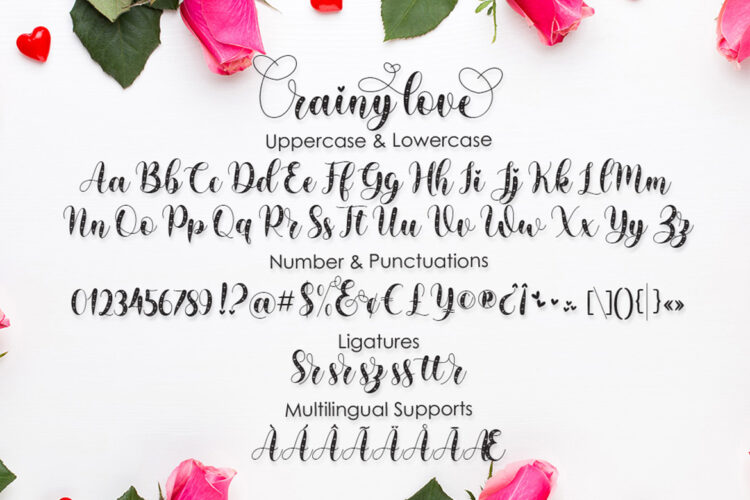 rainy love
Uppercase & Lowercase
Aa Bb Cc Dd Ee Ff Gg Hh Ii Jj Kk Ll Mm
Nn Oo Pp Qq Rr Ss Tt Uu Vv Ww Xx Yy Zz
Number & Punctuations
0123456789!?@#$%&¢€£¥©®¿¡ [\](){|}«»
Ligatures
Sr sr sz ss tt tr
Multilingual Supports
ÀÁÂÃÄÅĀÆ